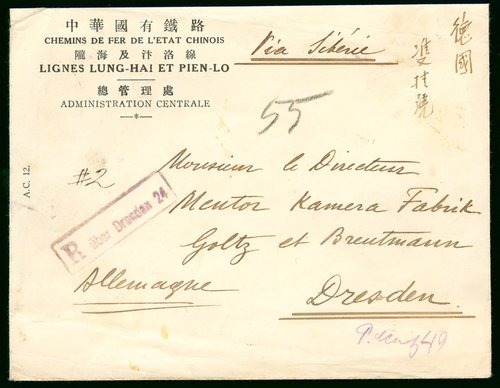 中華國有鐵路
CHEMINS DE FER DE L'ETAT CHINOIS
隴海及汴洛線
LIGNES LUNG-HAI ET PIEN-LO
總管理處
ADMINISTRATION CENTRALE
Via Sibérie
德國
雙挂號
55
A.C. 12.
#2
R über Dresden 24
Monsieur le Directeur
Mentor Kamera Fabrik
Goltz et Breutmann
Allemagne
Dresden
49